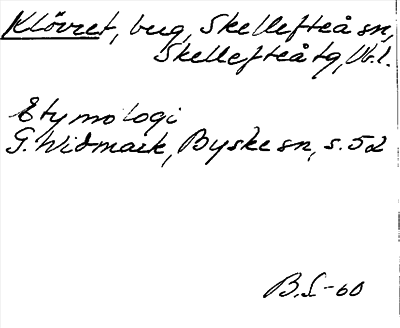 Klövret, bug, Skellefteå sn,
Skellefteå tg, Vb.l.
Etymologi
G. Widmark, Byske sn, s. 52
B.L-60